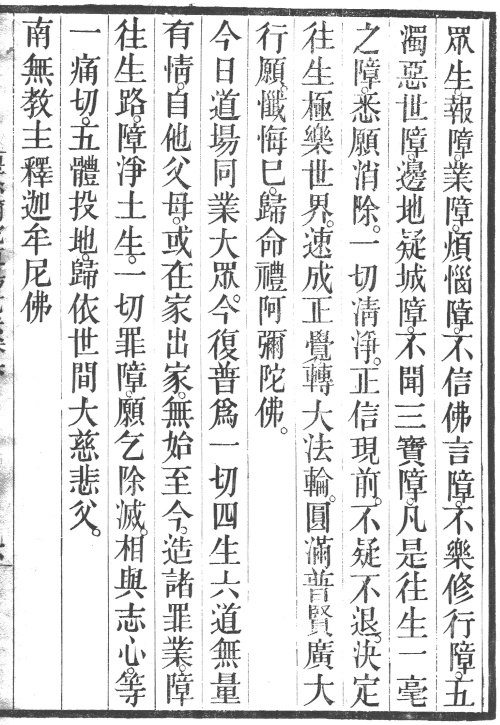 眾生報障。業障。煩惱障。不信佛言障。不樂修行障。五
濁惡世障。邊地疑城障。不聞三寶障。凡是往生一毫
之障。悉願消除。一切清淨。正信現前。不疑不退。決定
往生極樂世界。速成正覺。轉大法輪。圓滿普賢廣大
行願。懺悔已。歸命禮阿彌陀佛。
今日道場同業大眾。今復普爲一切四生六道無量
有情。自他父母。或在家出家。無始至今。造諸罪業。障
往生路。障淨土生。一切罪障。願乞除滅。相與志心。等
一痛切。五體投地。歸依世間大慈悲父。
南無教主釋迦牟尼佛